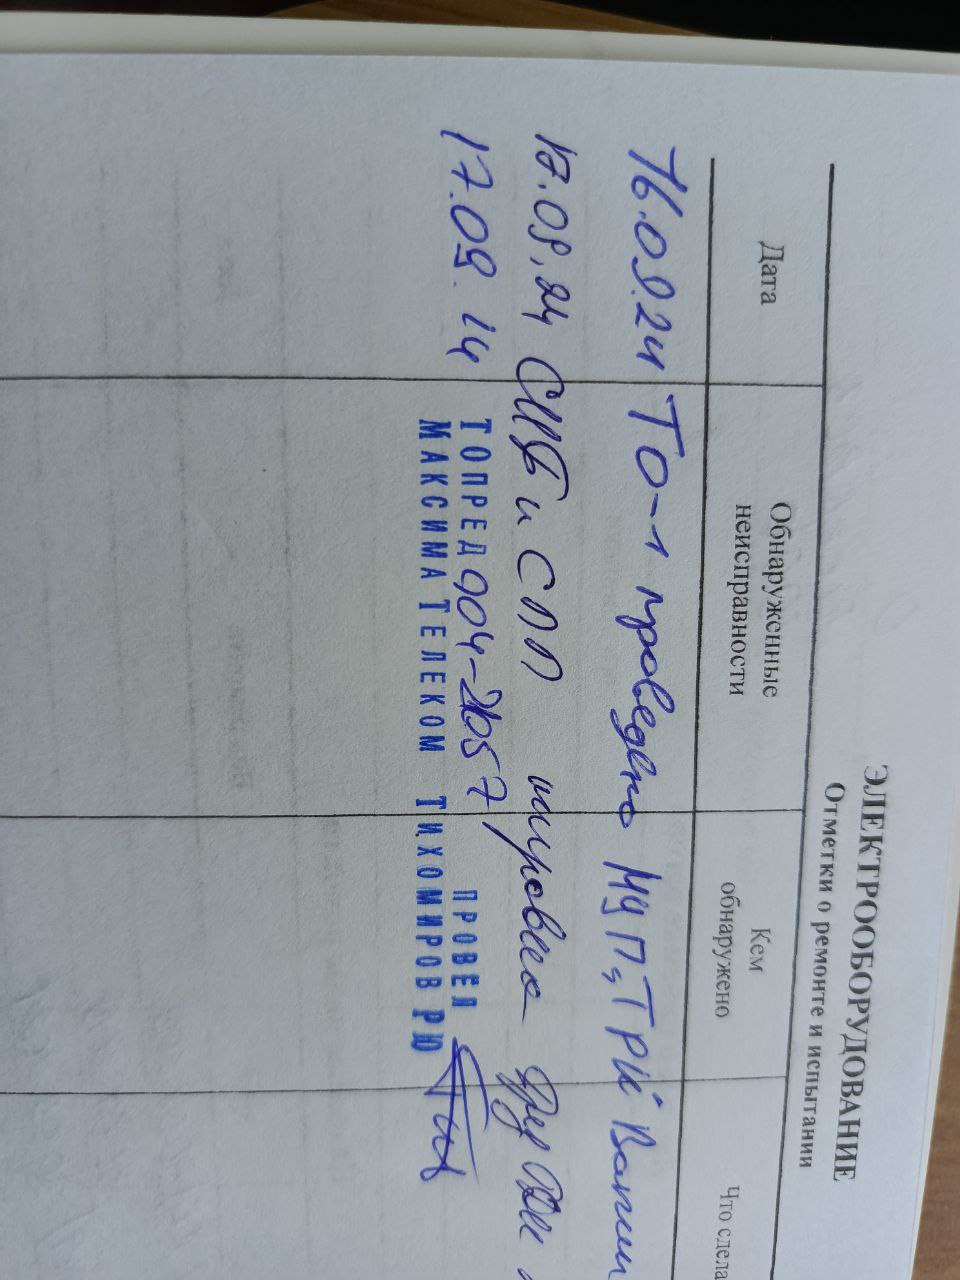 ЭЛЕКТРООБОРУДОВАНИЕ
Отметки о ремонте и испытании
Дата
Обнаруженные
неисправности
Кем
обнаружено
Что сдела
16.09.24 ТО-1 проведено МУП „ТРИ"
17.09.24 и СПП
17.09.14 ТО ПРЕД 904-2657 ПРОВЕЛ
МАКСИМА ТЕЛЕКОМ ТИХОМИРОВ РЮ